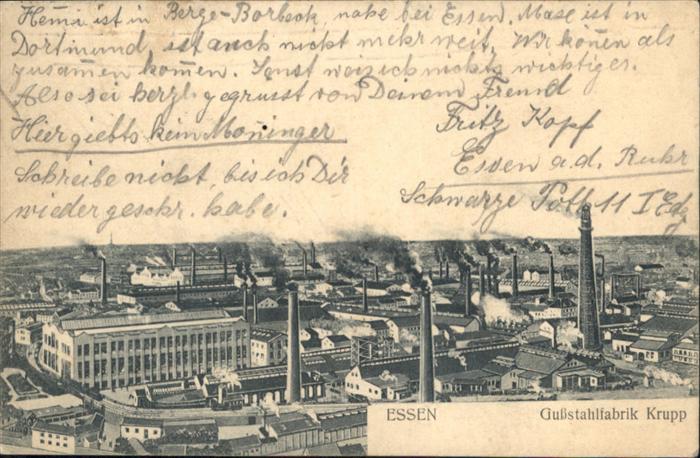 Hemi ist in Berge-Borbeck, nahe bei Essen. Mase ist in
Dortmund, ist auch nicht mehr weit. Wir kon̄en als
zusam̄en kom̄en. Sonst weis ich nichts wichtiges.
Also sei herzl. gegrusst von Deinem Freund
Fritz Kopf
Hier giebts kein Mon̄inger
Essen a. d. Ruhr
Schreibe nicht, bis ich Dir
Schwarze Poth 11 I Etg
wieder geschr. habe.
ESSEN
Gußstahlfabrik Krupp